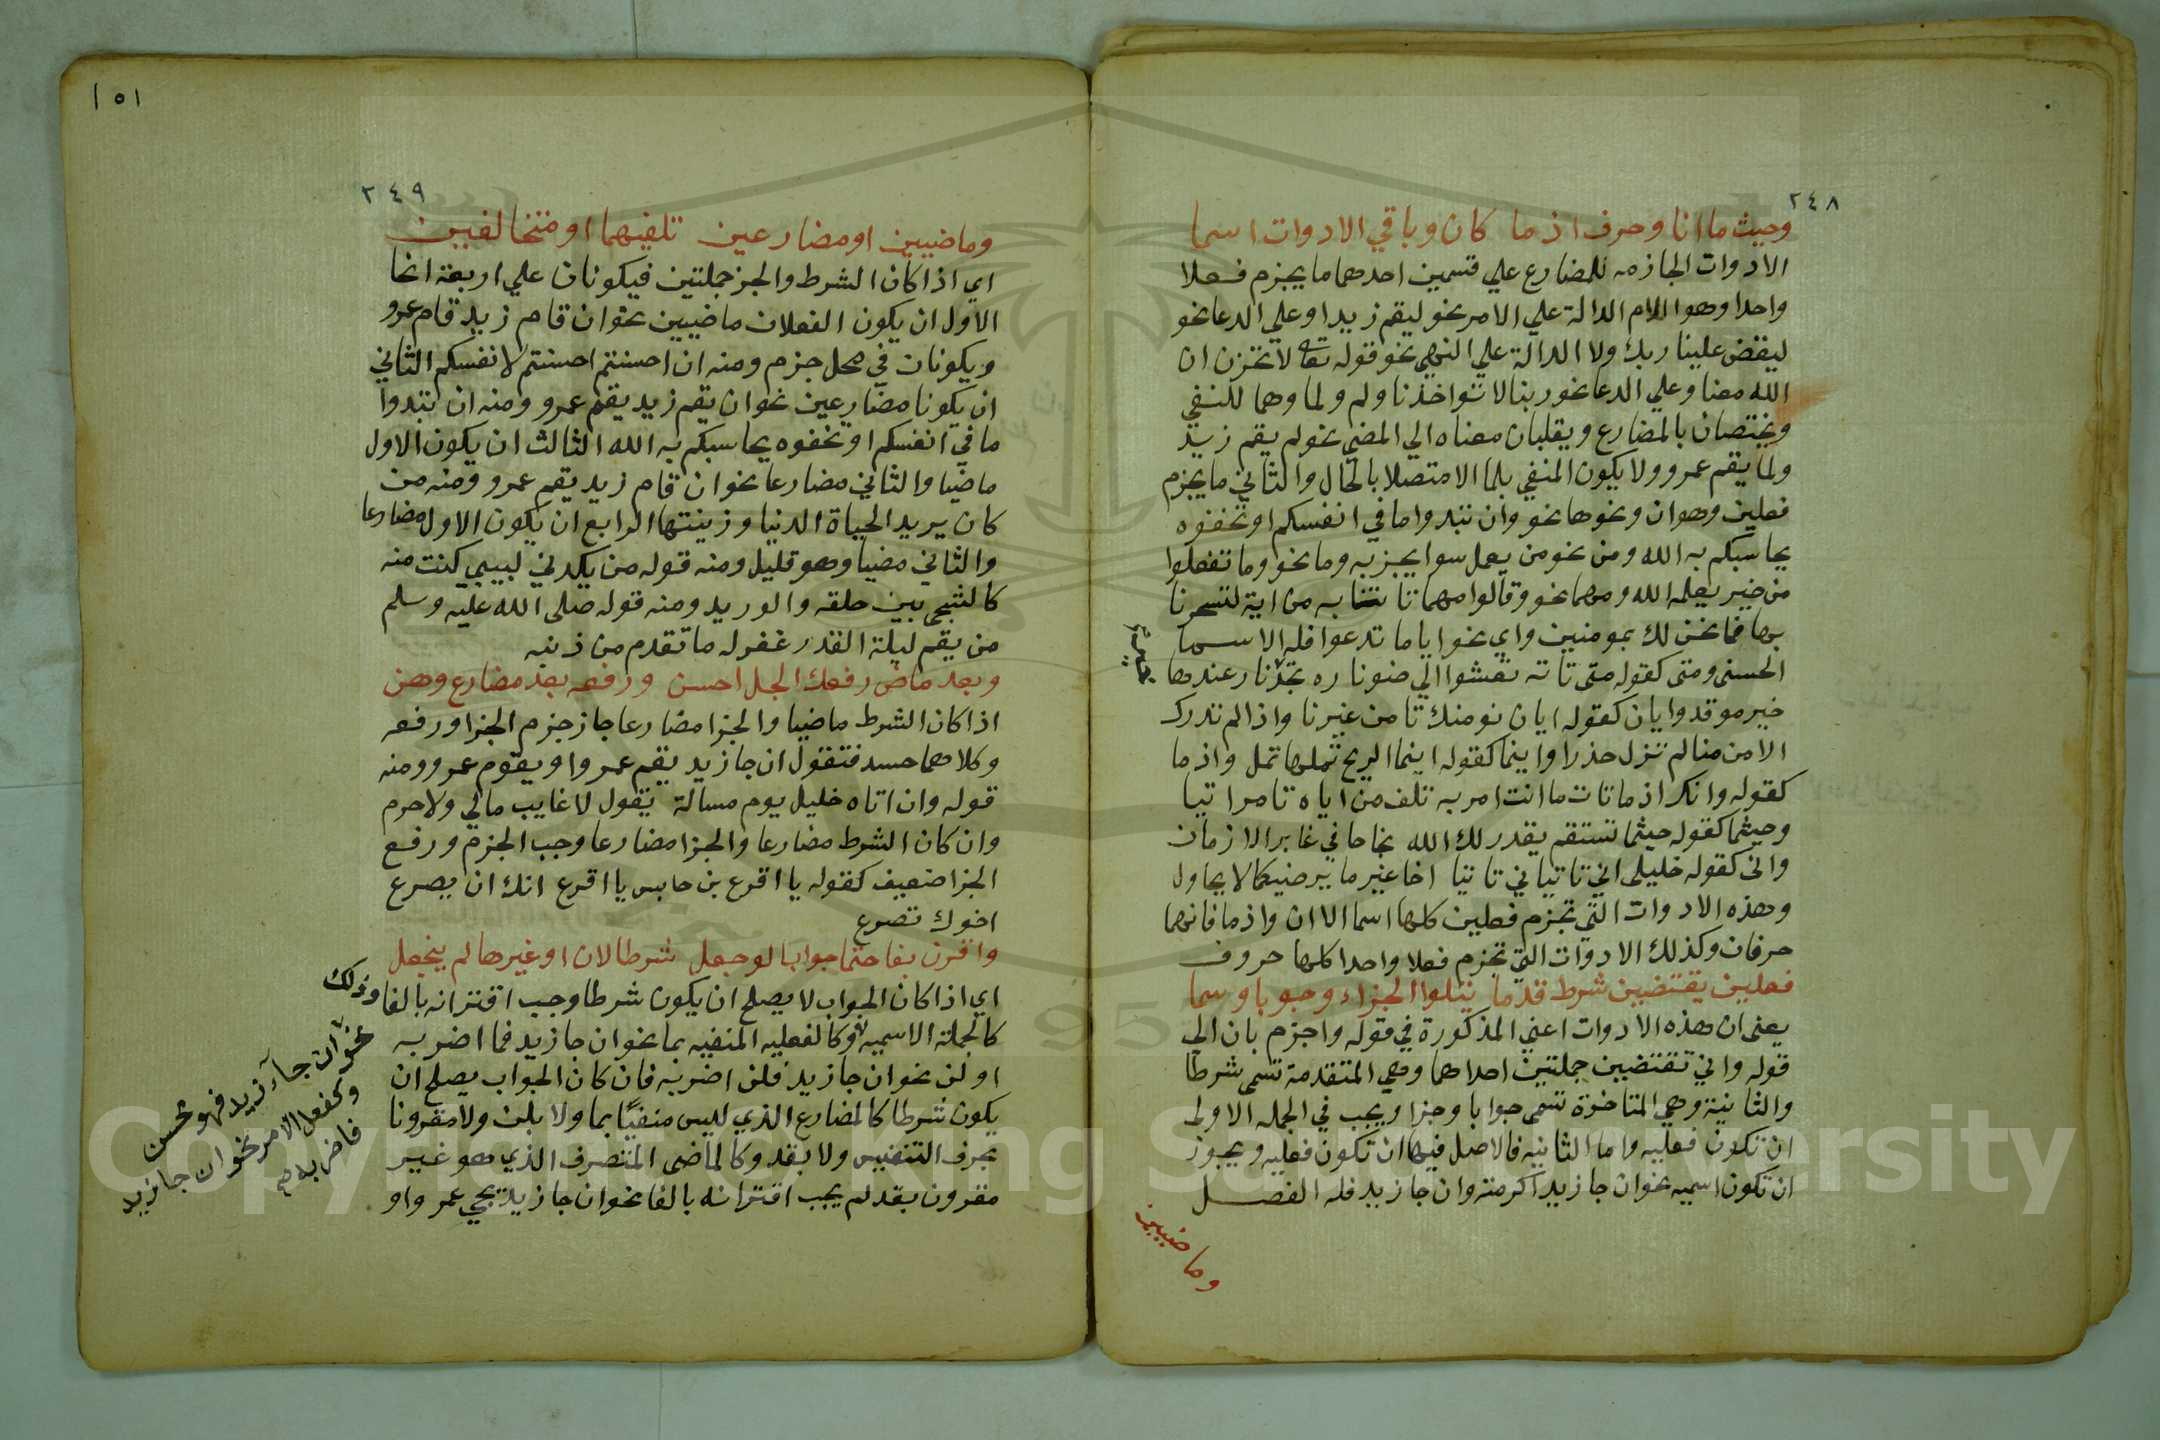 ٢٤٨
وحيث ما انا وحرف اذ ما كان وباقي الادوات اسما
الادوات الجازمه للمضارع علي قسمين احدهما ما يجزم فعلا
واحدا وهو اللام الدالة علي الامر نحو ليقم زيد او علي الدعا نحو
ليقض علينا ربك ولا الدالة علي النهي نحو قوله تعالى لا تحزن ان
الله معنا وعلي الدعا نحو ربنا لا تواخذنا ولم ولما وهما للنفي
ويختصان بالمضارع ويقلبان معناه الي المضي نحو لم يقم زيد
ولما يقم عمرو ولا يكون المنفي بلما الا متصلا بالحال والثاني ما يجزم
فعلين وهو ان ونحوها نحو وان تبدوا ما في انفسكم او تخفوه
يحاسبكم به الله ومن نحو من يعمل سوا يجز به وما نحو وما تفعلوا
من خير يعلمه الله ومهما نحو وقالوا مهما تاتنا به من اية لتسحرنا
بها فما نحن لك بمومنين واي نحو ايا ما تدعوا فله الاسما
الحسنى ومتى كقوله متى تاته تعشوا الي ضو ناره تجد نار عندها
خير موقد وايان كقوله ايان نومنك تامن غيرنا واذا لم تدرك
الامن منا لم تزل حذرا واينما كقوله اينما الريح تميلها تمل واذ ما
كقوله وانك اذ ما تات ما انت امر به تلف من اياه تامر اتيا
وحيثما كقوله حيثما تستقم يقدر لك الله نجاحا في غابر الازمان
واني كقوله خليلي اني تاتياني تاتيا اخا غير ما يرضيكما لا يحاول
وهذه الادوات التي تجزم فعلين كلها اسما الا ان واذ ما فانهما
حرفان وكذلك الادوات التي تجزم فعلا واحدا كلها حروف
فعلين يقتضين شرط قدما يتلوا الجزاء وجوبا وسما
يعني ان هذه الادوات اعني المذكورة في قوله واجزم بان الي
قوله واني تقتضين جملتين احداهما وهي المتقدمة تسمى شرطا
والثانية وهي المتاخرة تسمى جوابا وجزا ويجب في الجمله الاولى
ان تكون فعليه واما الثانيه فالاصل فيها ان تكون فعليه ويجوز
ان تكون اسميه نحو ان جا زيد اكرمته وان جا زيد فله الفضل
وماضيين
١٥١
٢٤٩
وماضيين او مضارعين تلفيهما او متخالفين
اي اذا كان الشرط والجز جملتين فيكونان علي اربعة انحا
الاول ان يكون الفعلان ماضيين نحو ان قام زيد قام عمرو
ويكونان في محل جزم ومنه ان احسنتم احسنتم لانفسكم الثاني
ان يكونا مضارعين نحو ان يقم زيد يقم عمرو ومنه ان تبدوا
ما في انفسكم او تخفوه يحاسبكم به الله الثالث ان يكون الاول
ماضيا والثاني مضارعا نحو ان قام زيد يقم عمرو ومنه من
كان يريد الحياة الدنيا وزينتها الرابع ان يكون الاول مضارعا
والثاني مضيا وهو قليل ومنه قوله من يكدني لبيبي كنت منه
كالشجى بين حلقه والوريد ومنه قوله صلى الله عليه وسلم
من يقم ليلة القدر غفر له ما تقدم من ذنبه
وبعد ماض رفعك الجزا حسن ورفعه بعد مضارع وهن
اذا كان الشرط ماضيا والجزا مضارعا جاز جزم الجزا ورفعه
وكلاهما حسد فتقول ان جا زيد يقم عمرو او يقوم عمرو ومنه
قوله وان اتاه خليل يوم مسالة يقول لا غايب مالي ولا حرم
وان كان الشرط مضارعا والجزا مضارعا وجب الجزم ورفع
الجزا ضعيف كقوله يا اقرع بن حابس يا اقرع انك ان يصرع
اخوك تصرع
واقرن بفا حتما جوابا لو جعل شرطا لان او غيرها لم ينجعل
اي اذا كان الجواب لا يصلح ان يكون شرطا وجب اقترانه بالفا وذلك
كالجملة الاسميه وكالفعليه المنفيه بما نحو ان جا زيد فما اضربه
او لن نحو ان جا زيد فلن اضربه فان كان الجواب يصلح ان
يكون شرطا كالمضارع الذي ليس منفيا بما ولا بلن ولا مقرونا
بحرف التنفيس ولا بقد وكالماضي المتصرف الذي هو غير
مقرون بقد لم يجب اقترانه بالفا نحو ان جا زيد يجي عمرو او
نحو ان جاء زيد فهو محسن
وكفعل الامر نحو ان جا زيد
فاضربه
Copyright © King Saud University